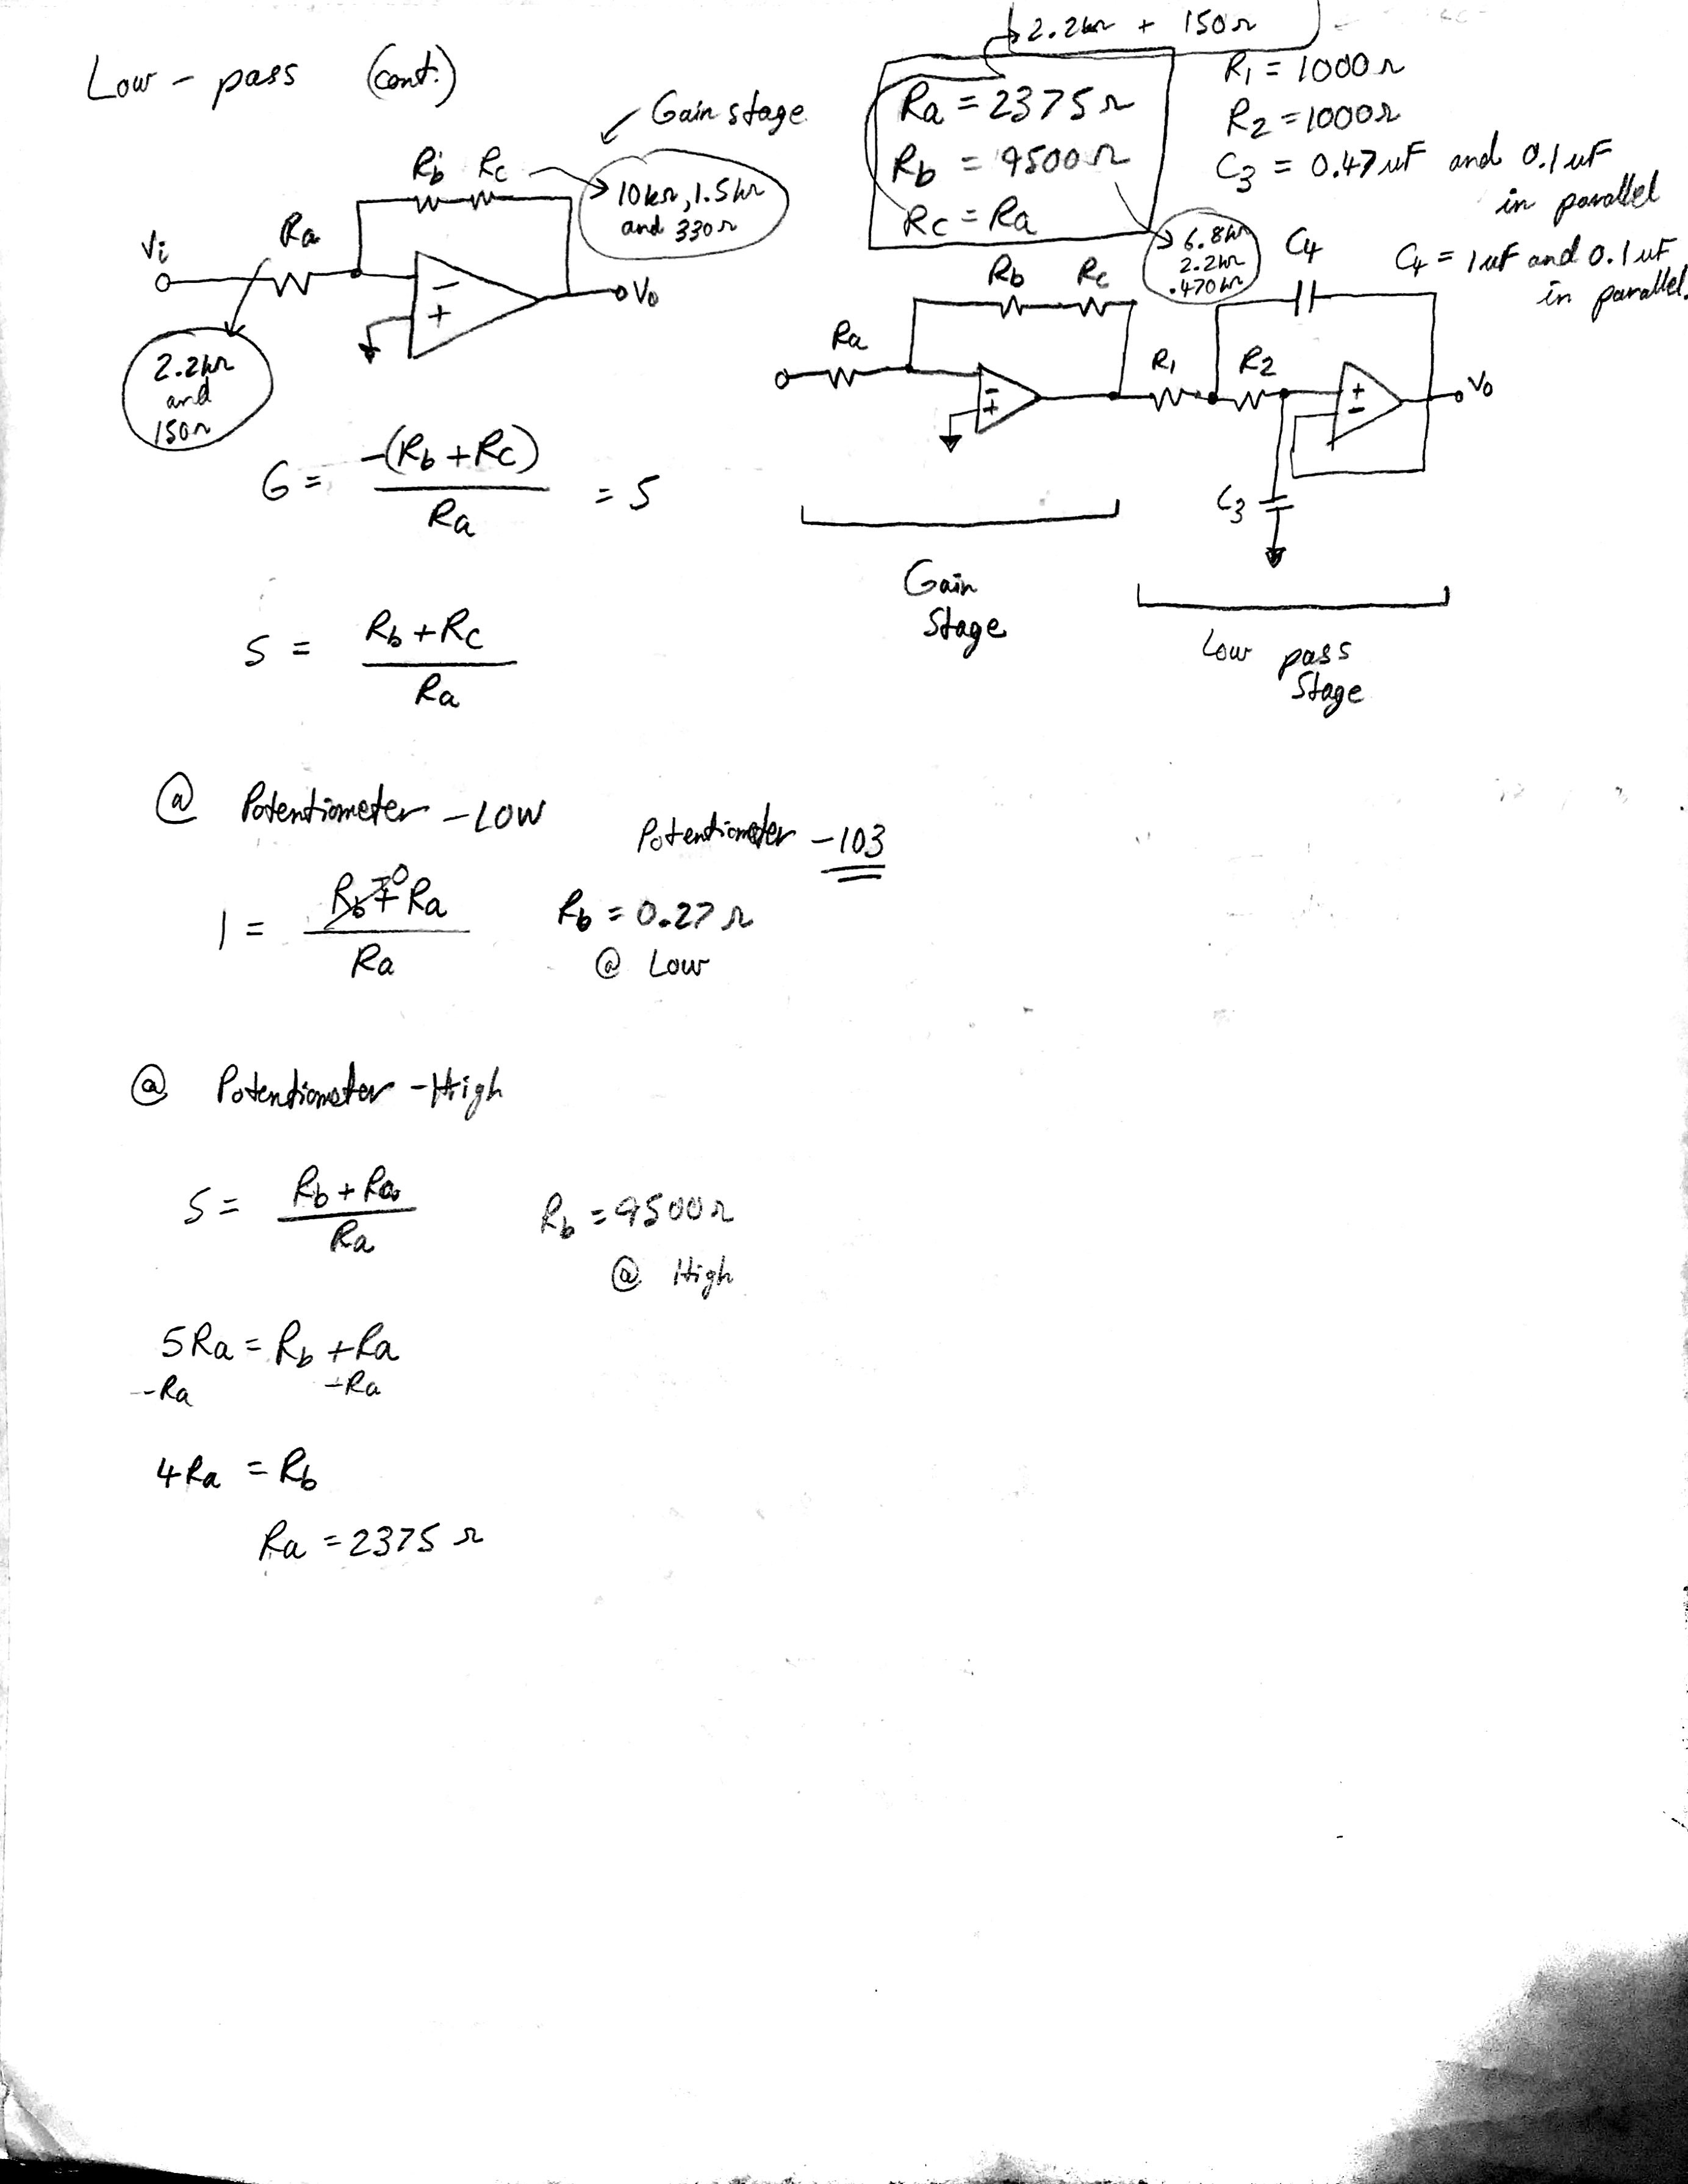 Low - pass (cont.)
Gain stage
Rb Rc
10kΩ, 1.5kΩ
and 330Ω
Ra
Vi
Vo
-
+
2.2kΩ
and
150Ω
G = -(Rb + Rc) / Ra = 5
5 = Rb + Rc / Ra
2.2kΩ + 150Ω
Ra = 2375Ω
Rb = 9500Ω
Rc = Ra
6.8kΩ
2.2kΩ
.470kΩ
R1 = 1000Ω
R2 = 1000Ω
C3 = 0.47uF and 0.1uF
in parallel
C4 = 1uF and 0.1uF
in parallel.
Rb Rc
C4
Ra
R1 R2
-
+
+
-
Vo
C3
Gain
Stage
Low pass
Stage
@ Potentiometer - LOW
Potentiometer - 103
1 = Rb + Ra / Ra
0
Rb = 0.27Ω
@ Low
@ Potentiometer - High
5 = Rb + Ra / Ra
Rb = 9500Ω
@ High
5Ra = Rb + Ra
-Ra -Ra
4Ra = Rb
Ra = 2375Ω